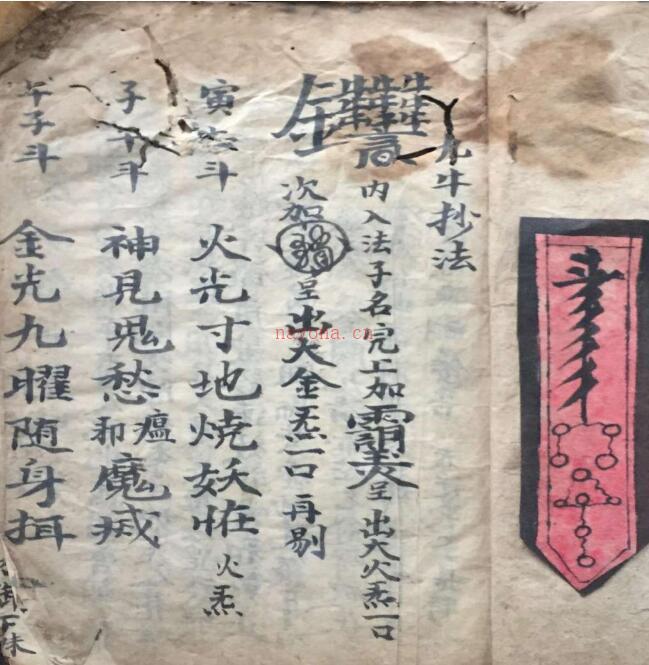 九牛抄法
内入法子名完上加
呈出大火炁一口
次加
呈出大金炁一口再剔
寅
斗
火光寸地燒妖怪火炁
子
斗
神見鬼愁
和瘟魔滅
午子斗
金光九曜随身
nayona.cn